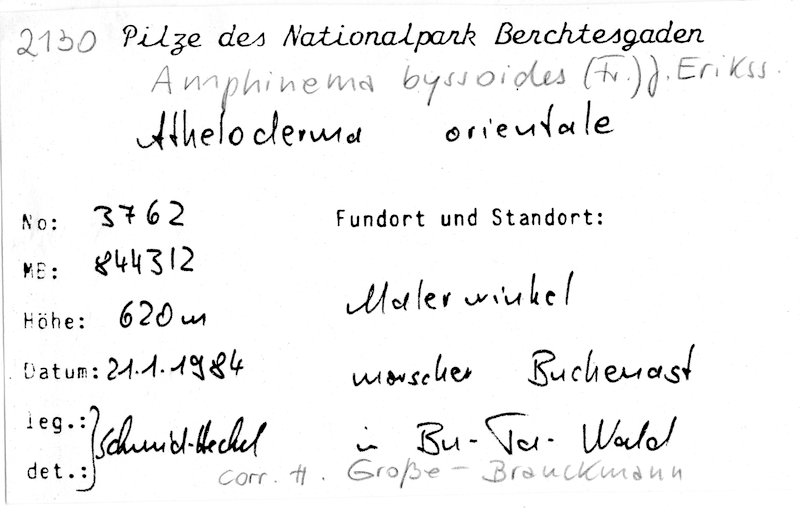 2130 Pilze des Nationalpark Berchtesgaden
Amphinema byssoides (Fr.) J. Erikss.
Atheloderma orientale
No: 3762
Fundort und Standort:
MB: 844312
Höhe: 620m
Malerwinkel
Datum: 21.1.1984
morscher Buchenast
leg.: } Schmid-Heckel
in Bu-Ta-Wald
det.:
corr. H. Große-Brauckmann